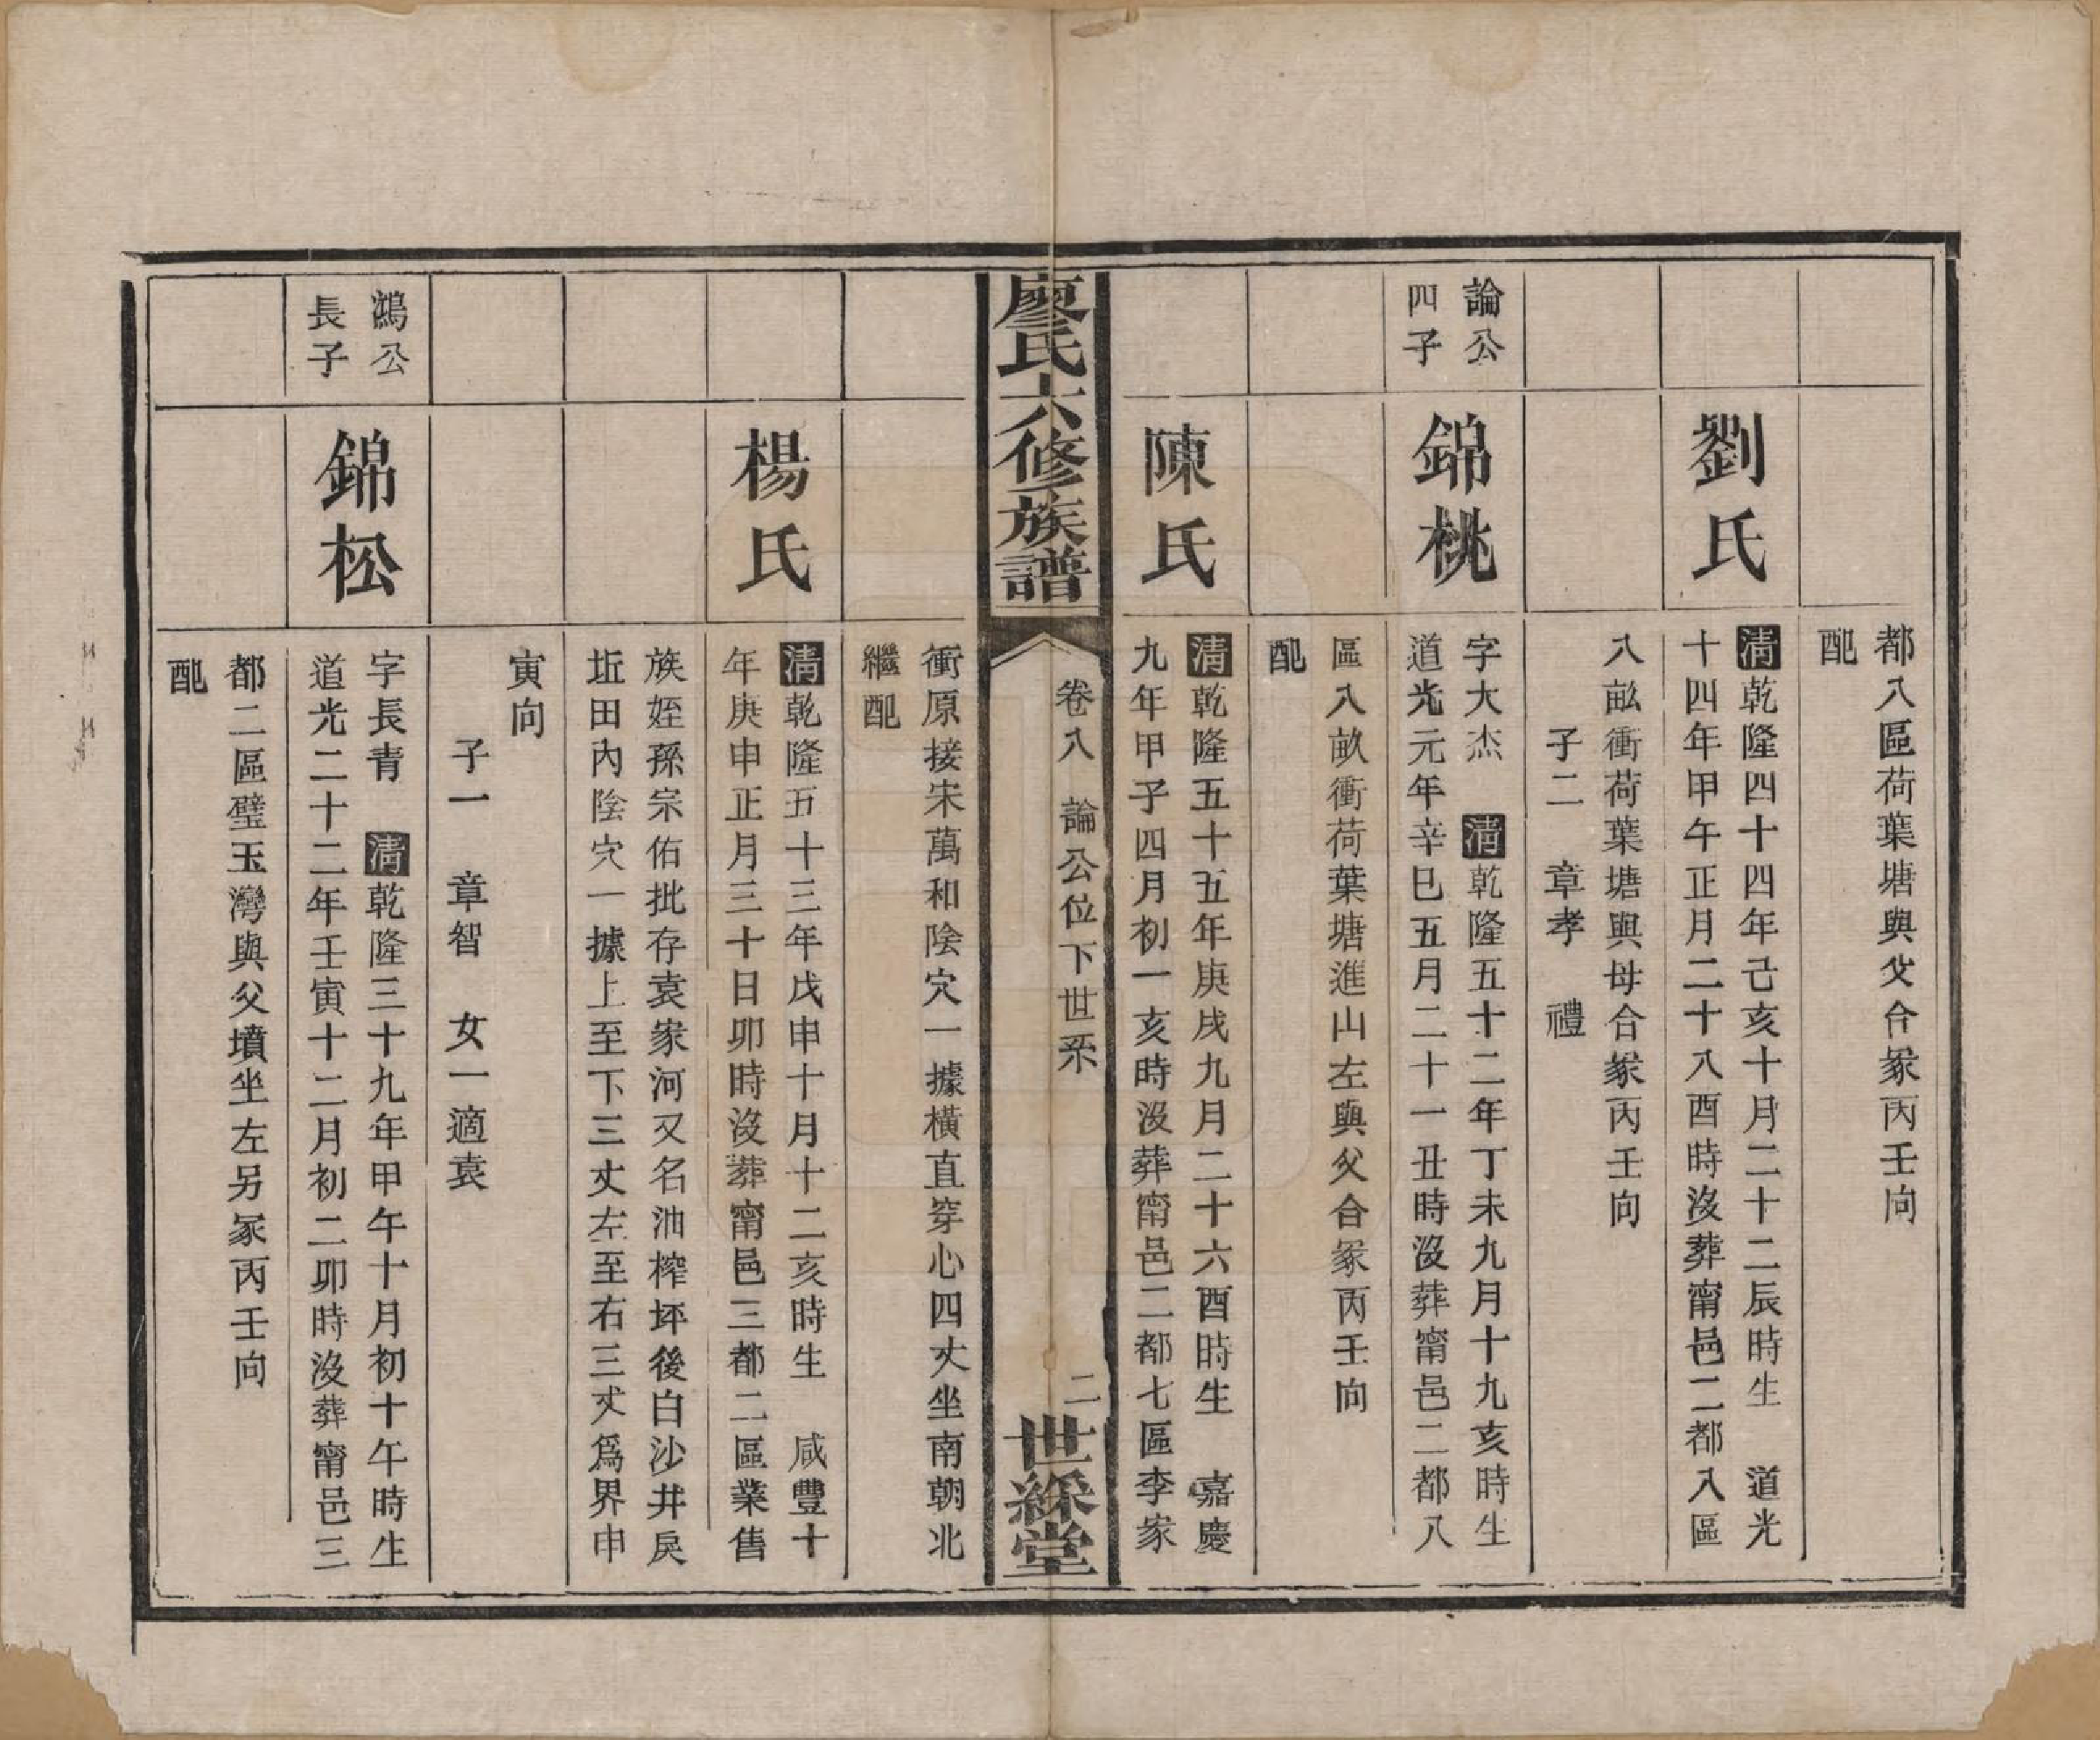 都八區荷葉塘與父合冢丙壬向
配
劉氏
清乾隆四十四年己亥十月二十二辰時生　道光
十四年甲午正月二十八酉時沒葬甯邑二都八區
八畝衝荷葉塘與母合冢丙壬向
子二　章孝　禮
論公
四子
錦桃
字大杰　清乾隆五十二年丁未九月十九亥時生
道光元年辛巳五月二十一丑時沒葬甯邑二都八
區八畝衝荷葉塘進山左與父合冢丙壬向
配
陳氏
清乾隆五十五年庚戌九月二十六酉時生　嘉慶
九年甲子四月初一亥時沒葬甯邑二都七區李家
廖氏六修族譜
卷八　論公位下世系
二
世綵堂
衝原接宋萬和陰穴一據橫直穿心四丈坐南朝北
繼配
楊氏
清乾隆五十三年戊申十月十二亥時生　咸豐十
年庚申正月三十日卯時沒葬甯邑三都二區業售
族姪孫宗佑批存袁家河又名油榨坪後白沙井戾
坵田內陰穴一據上至下三丈左至右三丈爲界申
寅向
子一　章智　女一適袁
鴻公
長子
錦松
字長青　清乾隆三十九年甲午十月初十午時生
道光二十二年壬寅十二月初二卯時沒葬甯邑三
都二區璧玉灣與父墳坐左另冢丙壬向
配